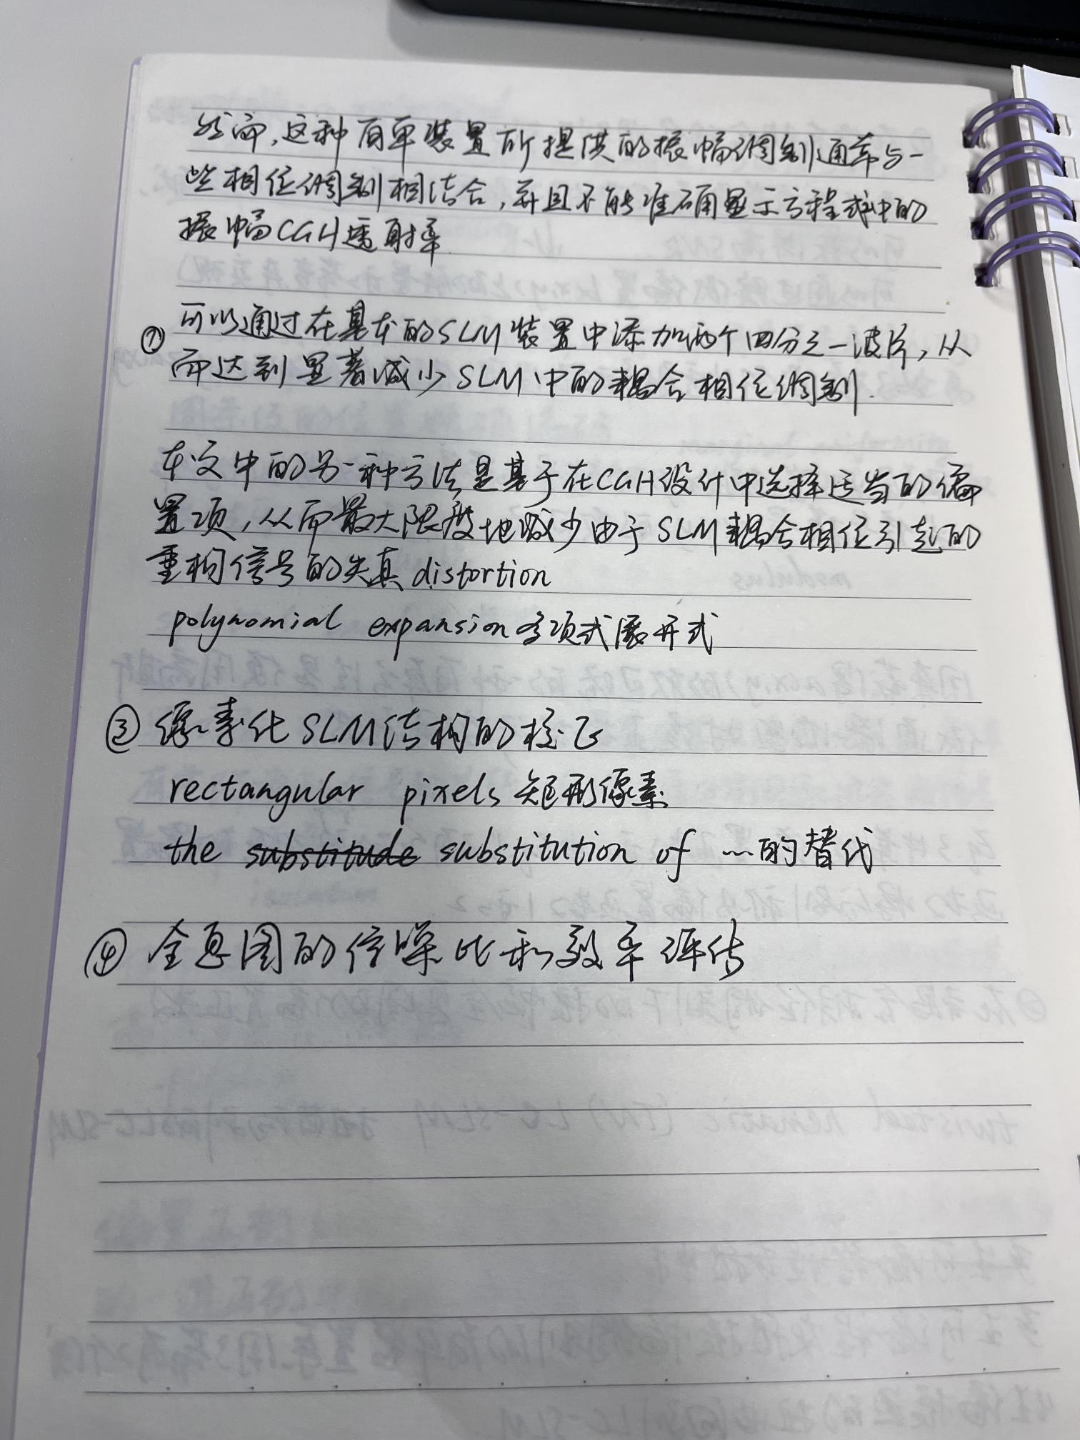 然而,这种简单装置所提供的振幅调制通常与一
些相位调制相结合,并且不能准确显示方程式中的
振幅CGH透射率
① 可以通过在基本的SLM装置中添加两个四分之一波片,从
而达到显著减少SLM中的耦合相位调制.
本文中的另一种方法是基于在CGH设计中选择适当的偏
置项,从而最大限度地减少由于SLM耦合相位引起的
重构信号的失真 distortion
polynomial expansion 多项式展开式
③ 像素化SLM结构的校正
rectangular pixels 矩形像素
the substitude substitution of …的替代
④ 全息图的信噪比和效率评估